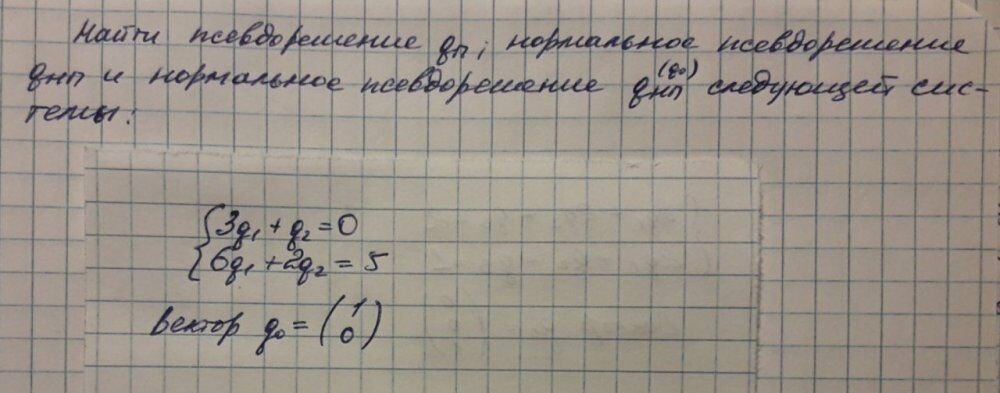 Найти псевдорешение qп, нормальное псевдорешение
qнп и нормальное псевдорешение qнп^(q₀) следующей сис-
темы:
{3q₁ + q₂ = 0
{6q₁ + 2q₂ = 5
Вектор q₀ = (1
0)